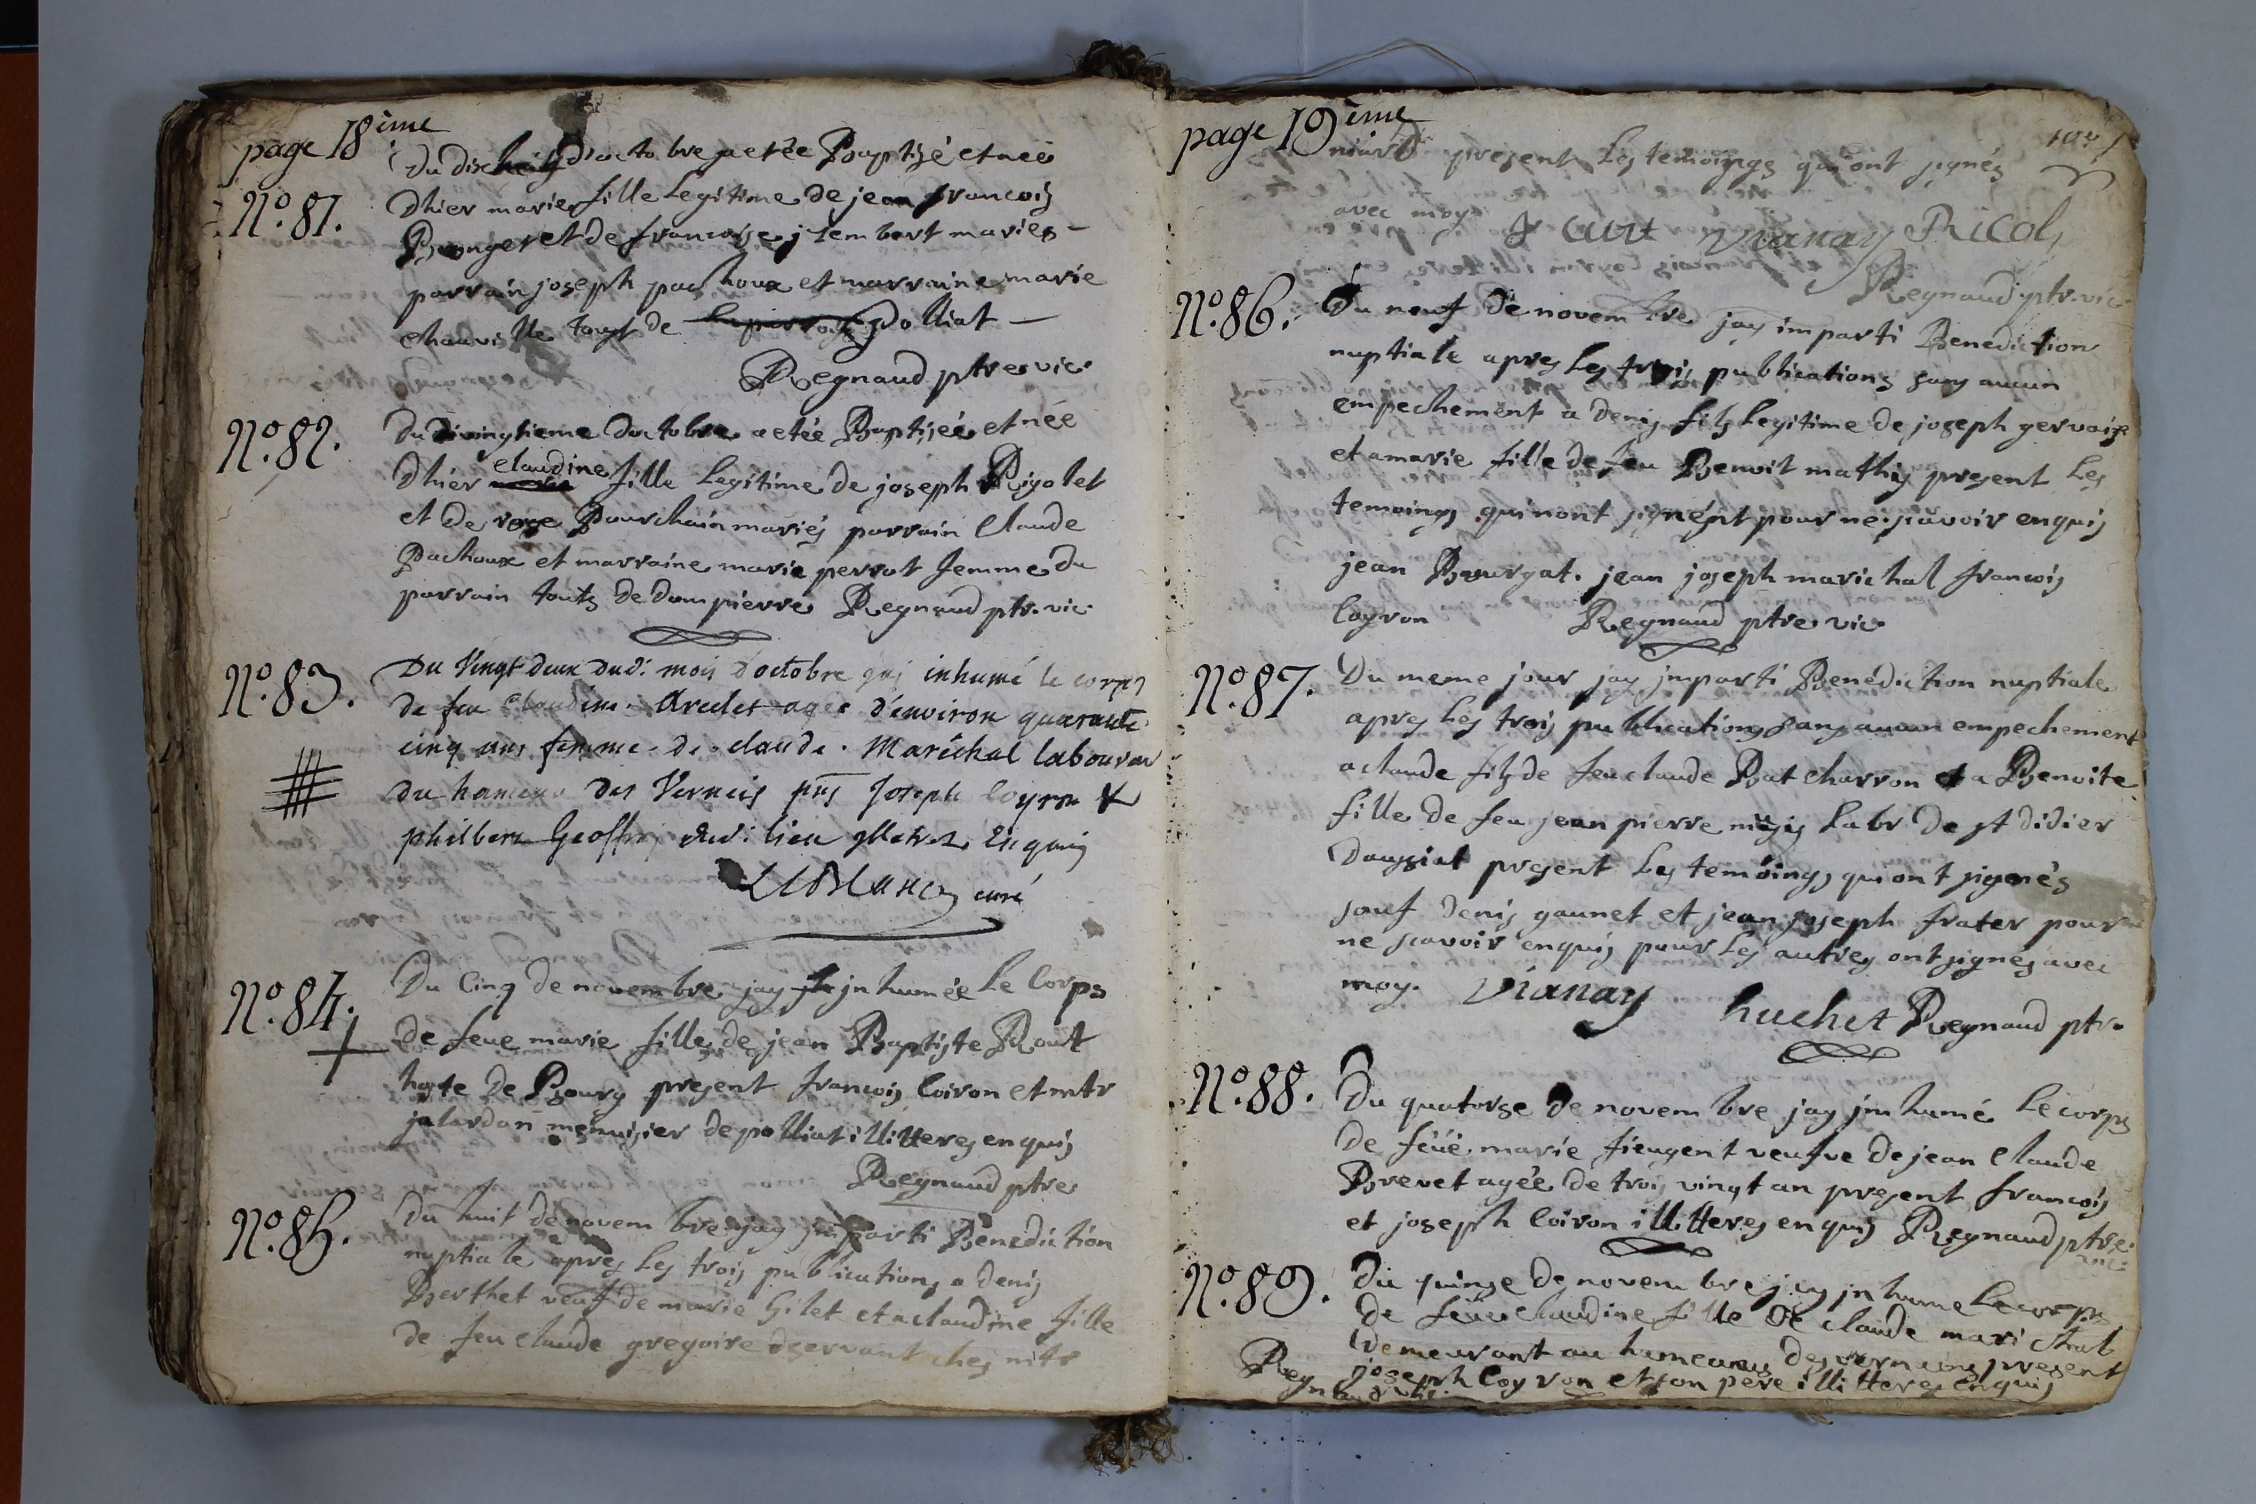 page 18ème
Du dishuit d'octobre a etée Baptizé et née
No. 81. Dhier marie fille legitime de jean francois
et de francoise mariés
parrain joseph pachoux et marraine marie
chauville touts de polliat
Regnaud ptre vic.
No. 82. Du vingtieme doctobre a etée Baptisée et née
Dhier claudine fille legitime de joseph Rigolet
et de rose Bourchain mariés parrain Claude
Pachoux et marraine marie perrot femme du
parrain touts de dompierre Regnaud ptr. vic
No. 83. Du Vingt deux dud: mois d'octobre jai inhumé le corps
de feu Claudine agée d'environ quarante
cinq ans femme de claude Maréchal laboureur
du hameau des Verneis pns Joseph loyron &
philbert Geoffray dud: lieu illetrez Enquis
LeBlanc curé
No. 84. Du Cinq de novembre jay jnhumée le Corps
de feue marie fille de jean Baptiste Rout
hoste de Bourg present francois Coiron et mtr
jalardan menuisier de polliat illitteres enquis
Regnaud ptre
No. 85. Du huit de novembre jay jmparti Benediction
nuptiale apres les trois publications a denis
Berthet veuf de marie Gilet et a claudine fille
de feu claude gregoire dservant ches mtr
page 19ème
present les temoings qui ont signés
avec moy Vianay Ricol
Regnaud ptr. vic
No. 86. Du neuf de novembre jay imparti Benediction
nuptiale apres les trois publications sans aucun
empechement a denis fils legitime de joseph gervaise
et a marie fille de feu Benoit mathis present les
temoings qui nont signés pour ne scavoir enquis
jean Bourgat. jean joseph marichal francois
loyron Regnaud ptre vic
No. 87. Du meme jour jay jmparti Benediction nuptiale
apres les trois publications sans aucun empechement
a claude fils de feu claude Bat charron et a Benoite
fille de feu jean pierre labr de st didier
Daussiat present les temoings qui ont signés
sauf denis gaunet et jean joseph frater pour
ne scavoir enquis pour les autres ont signés avec
moy. Vianay huchet Regnaud ptr.
No. 88. Du quatorse de novembre jay jnhumé le corps
de feüe marie fieugent veufve de jean Claude
Brevet agée de trois vingt an present francois
et joseph Coiron illitteres enquis Regnaud ptre
vic
No. 89. Du quinse de novembre jay jnhume le corps
de feüe claudine fille de claude marichal
demeurant au hameau des verneis present
joseph Coyron et son pere illitteres enquis
Regnaud